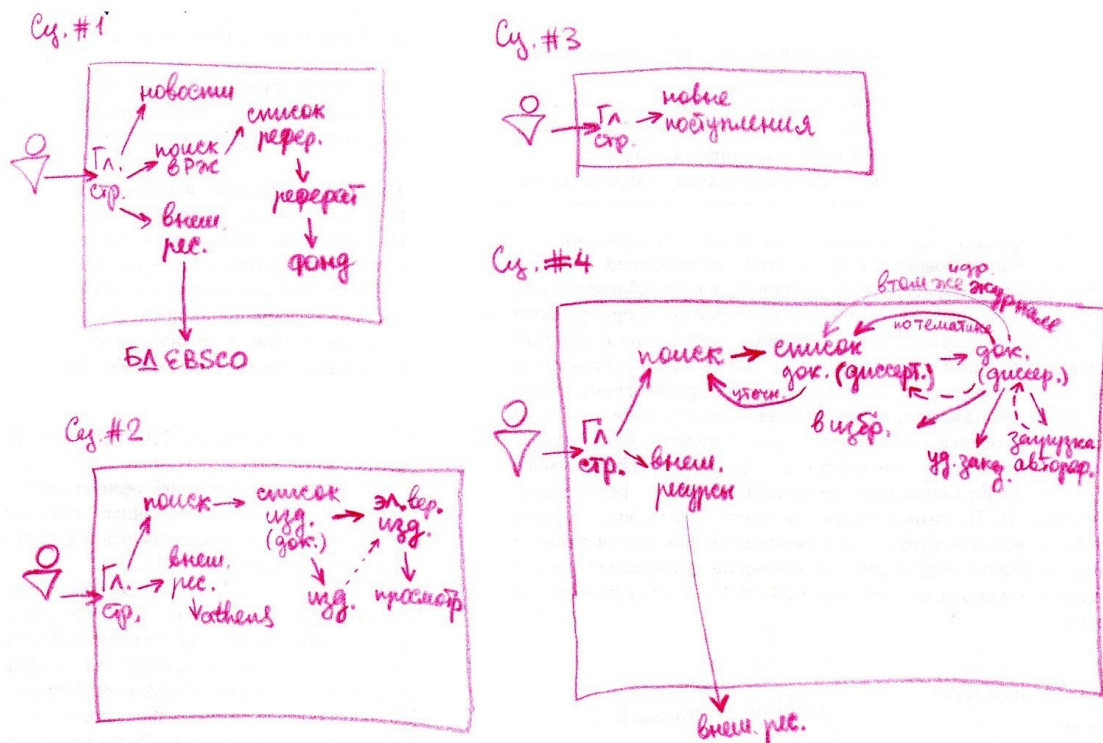 Сц. #1
новости
Гл.
стр.
поиск
в РЖ
список
рефер.
реферат
фонд
внеш.
рес.
БД EBSCO
Сц. #2
Гл.
стр.
поиск
список
изд.
(док.)
эл. вер.
изд.
просмотр
изд.
внеш.
рес.
athens
Сц. #3
Гл.
стр.
новые
поступления
Сц. #4
Гл.
стр.
поиск
список
док. (диссерт.)
уточн.
по тематике
в том же журнале
идр.
док.
(диссер.)
в избр.
уд. заказ
загрузка
автореф.
внеш.
ресурсы
внеш. рес.